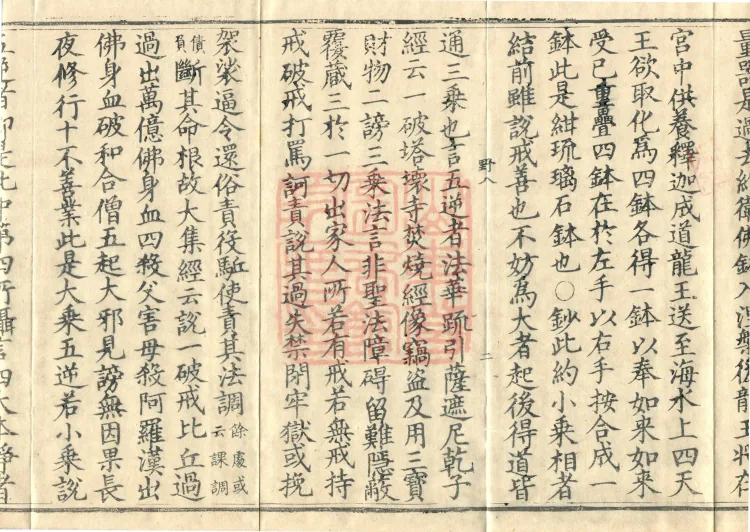 宮中供養釋迦成道龍王送至海水上四天
王欲取化爲四鉢各得一鉢以奉如來如來
受已重疊四鉢在於左手以右手按合成一
鉢此是紺琉璃石鉢也〇鈔此約小乘相者
結前雖說戒善也不妨爲大者起後得道皆
野八
二
通三乘也言五逆者法華疏引薩遮尼乾子
經云一破塔壞寺焚燒經像竊盜及用三寶
財物二謗三乘法言非聖法障碍留難隱蔽
覆藏三於一切出家人所若有戒若無戒持
戒破戒打罵訶責說其過失禁閉牢獄或挽
袈裟逼令還俗責役駈使責其法調餘處或云課調
債負斷其命根故大集經云說一破戒比丘過
過出萬億佛身血四殺父害母殺阿羅漢出
佛身血破和合僧五起大邪見謗無因果長
夜修行十不善業此是大乘五逆若小乘說